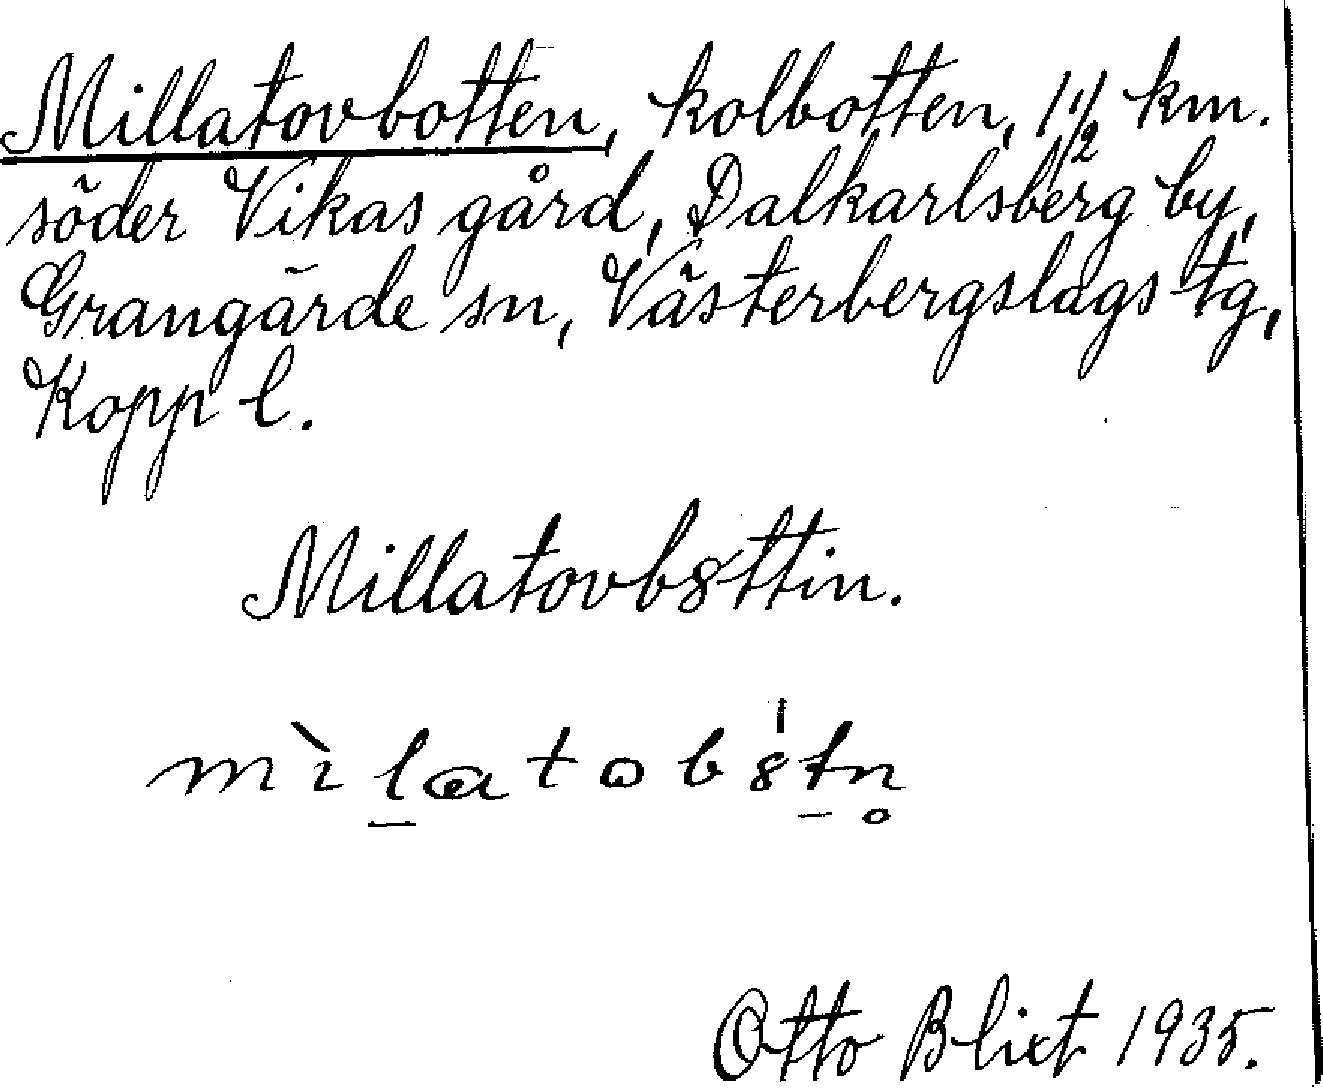 Millatovbotten, kolbotten, 1 1/2 km.
söder Vikas gård, Dalkarlsberg by,
Grangärde sn, Västerbergslags tg,
Kopp l.
Millatovb8ttin.
mìlatob8tn̥
Otto Blixt 1935.